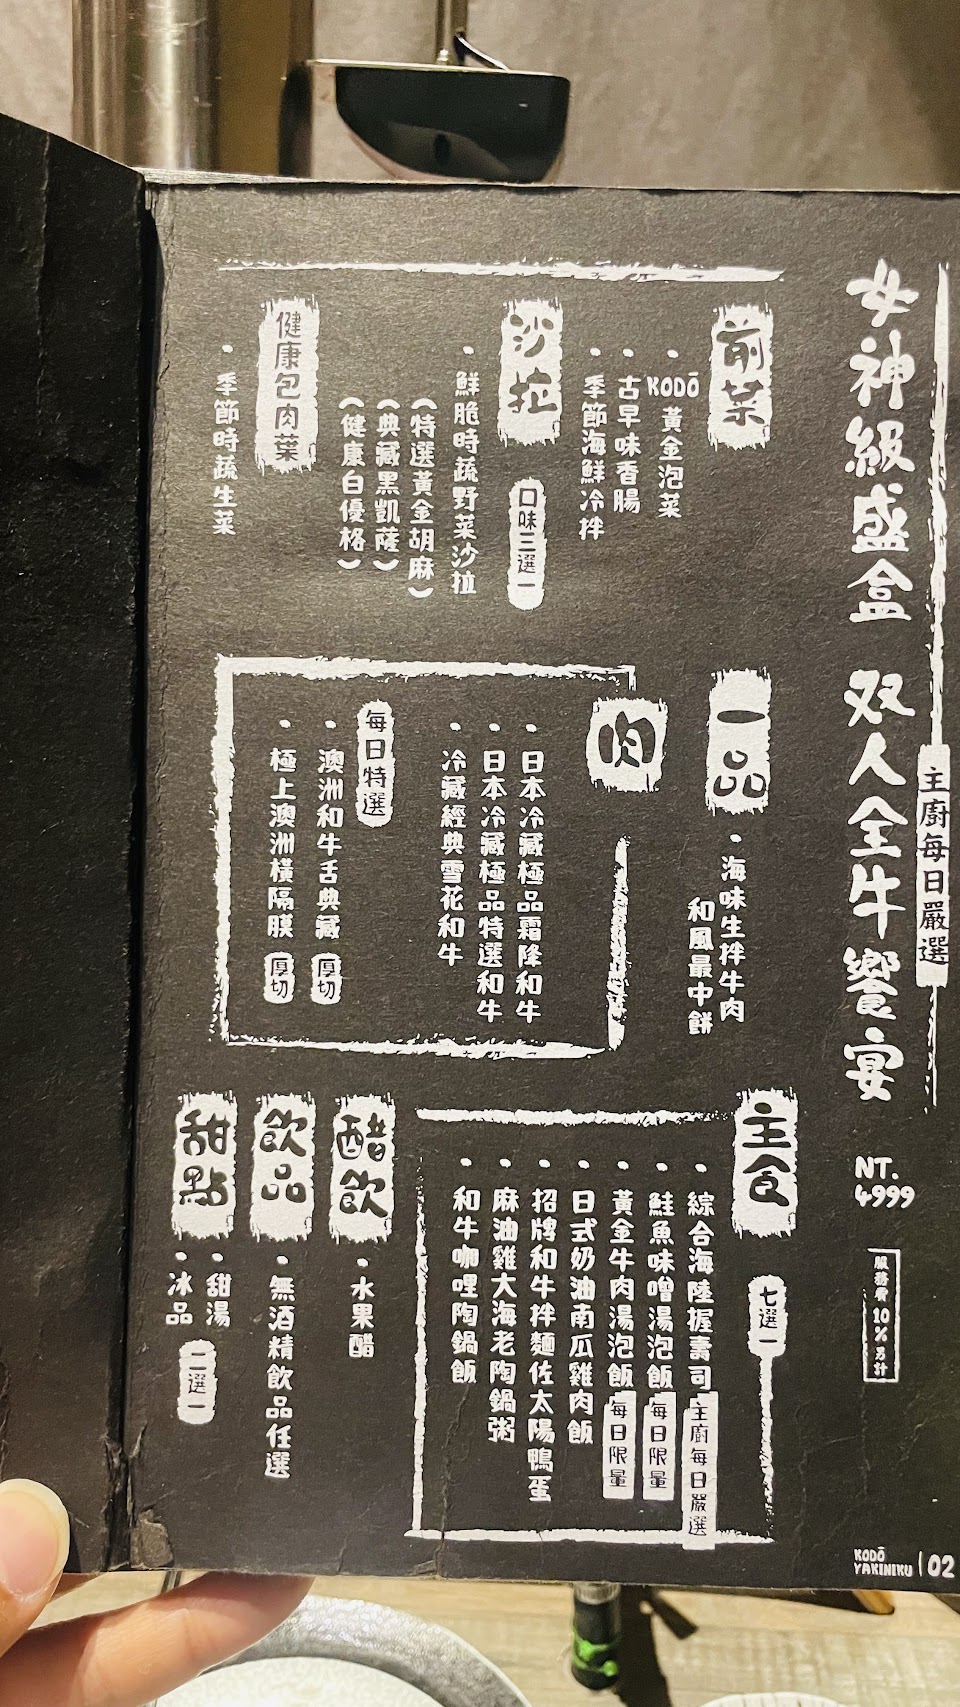 主廚每日嚴選
女神級盛盒 双人全牛饗宴
NT.
4999
服務費10%另計
前菜
・KODŌ 黃金泡菜
・古早味香腸
・季節海鮮冷拌
沙拉
口味三選一
・鮮脆時蔬野菜沙拉
(特選黃金胡麻)
(典藏黑凱薩)
(健康白優格)
健康包肉葉
・季節時蔬生菜
一品
・海味生拌牛肉
和風最中餅
肉
・日本冷藏極品霜降和牛
・日本冷藏極品特選和牛
・冷藏經典雪花和牛
每日特選
・澳洲和牛舌典藏 厚切
・極上澳洲橫隔膜 厚切
主食
七選一
・綜合海陸握壽司 主廚每日嚴選
・鮭魚味噌湯泡飯 每日限量
・黃金牛肉湯泡飯 每日限量
・日式奶油南瓜雞肉飯
・招牌和牛拌麵佐太陽鴨蛋
・麻油雞大海老陶鍋粥
・和牛咖哩陶鍋飯
醋飲
・水果醋
飲品
・無酒精飲品任選
甜點
・甜湯
・冰品
二選一
KODŌ
YAKINIKU | 02